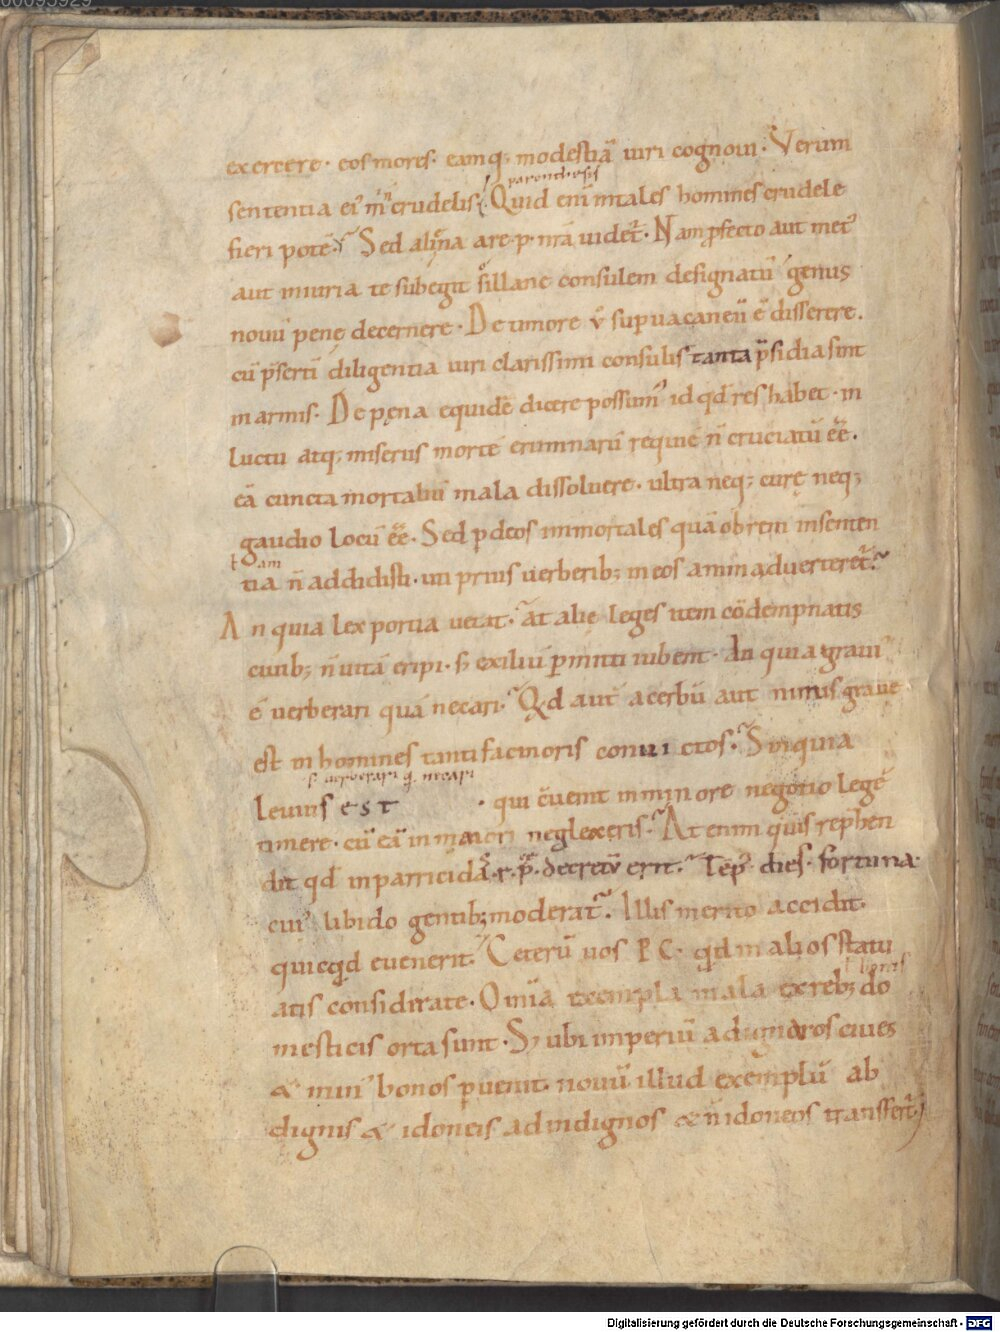 00095929
exercere. eos mores. eamq; modestiā uiri cognoui. Verum
parenthesis
sententia ei' m̄ n̄ crudelis. Quid enī in tales homines crudele
fieri potē? Sed aliena a re.p. nrā uidet̄. Nam pfecto aut met'
aut iniuria te subegit sillane consulem designatū genus
noui penę decernere. De timore v̄ supuacaneū ē dissertre.
cū p̄sertī diligentia uiri clarissimi consulis tanta p̄sidia sint
in armis. De pęna equidē dicere possum' id qd res habet. in
luctu atq; miseriis mortē erumnarū requiē n̄ cruciatū eē̄.
eā cuncta mortaliū mala dissoluere. ultra neq; curę neq;
gaudio locū eē̄. Sed p deos immortales quā ob rem in senten
ł am
tia n̄ addidisti. uti prius uerberib; in eos animaduerteret̄?
An quia lex portia uetat? at alie leges item cōdempnatis
ciuib; n̄ uitā eripi. s; exiliū pmitti iubent. An quia graui'
ē uerberari quā necari? Qd aut acerbū aut nimis graue
est in homines tanti facinoris conui ctos? Sin quia
s. uerberari q̄. necari
leuius est . qui c̄uenit in minore negotio legē
timere. cū eā in maiori neglexeris? At enim quis rephen
dit qd in parricidā.r.p. decretū erit? Tēp' dies. fortuna.
cui' libido gentib; moderat̄. Illis merito accidit.
quicqd euenerit. Ceterū uos P.C. qd in alios statu
ł bonis
atis considirate. Omīa exempla mala ex reb; do
mesticis orta sunt. S; ubi imperiū ad ignaros ciues
& min' bonos puenit. nouū illud exemplū ab
dignis & idoneis ad indignos & n̄ idoneos transfert̄
Digitalisierung gefördert durch die Deutsche Forschungsgemeinschaft - DFG